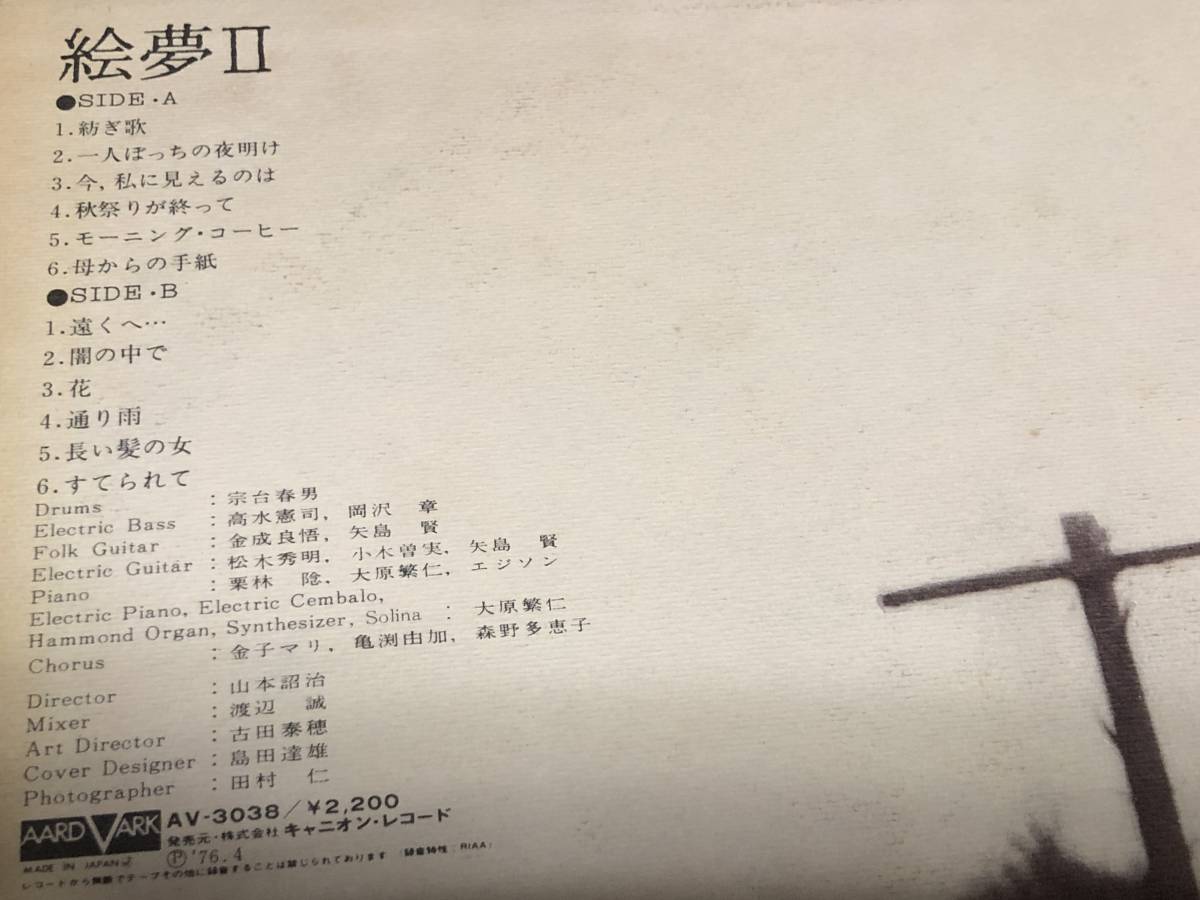 絵夢II
●SIDE・A
1.紡ぎ歌
2.一人ぼっちの夜明け
3.今,私に見えるのは
4.秋祭りが終って
5.モーニング・コーヒー
6.母からの手紙
●SIDE・B
1.遠くへ…
2.闇の中で
3.花
4.通り雨
5.長い髪の女
6.すてられて
Drums : 宗台春男
Electric Bass : 高水憲司, 岡沢 章
Folk Guitar : 金成良悟, 矢島 賢
Electric Guitar : 松木秀明, 小木曽実, 矢島 賢
Piano : 栗林 陰, 大原繁仁, エジソン
Electric Piano, Electric Cembalo,
Hammond Organ, Synthesizer, Solina : 大原繁仁
Chorus : 金子マリ, 亀渕由加, 森野多恵子
Director : 山本詔治
Mixer : 渡辺 誠
Art Director : 古田泰穂
Cover Designer : 島田達雄
Photographer : 田村 仁
AARDVARK AV-3038/¥2,200
発売元・株式会社 キャニオン・レコード
MADE IN JAPAN Ⓟ'76.4
レコードから無断でテープその他に録音することは禁じられております (録音特性:RIAA)